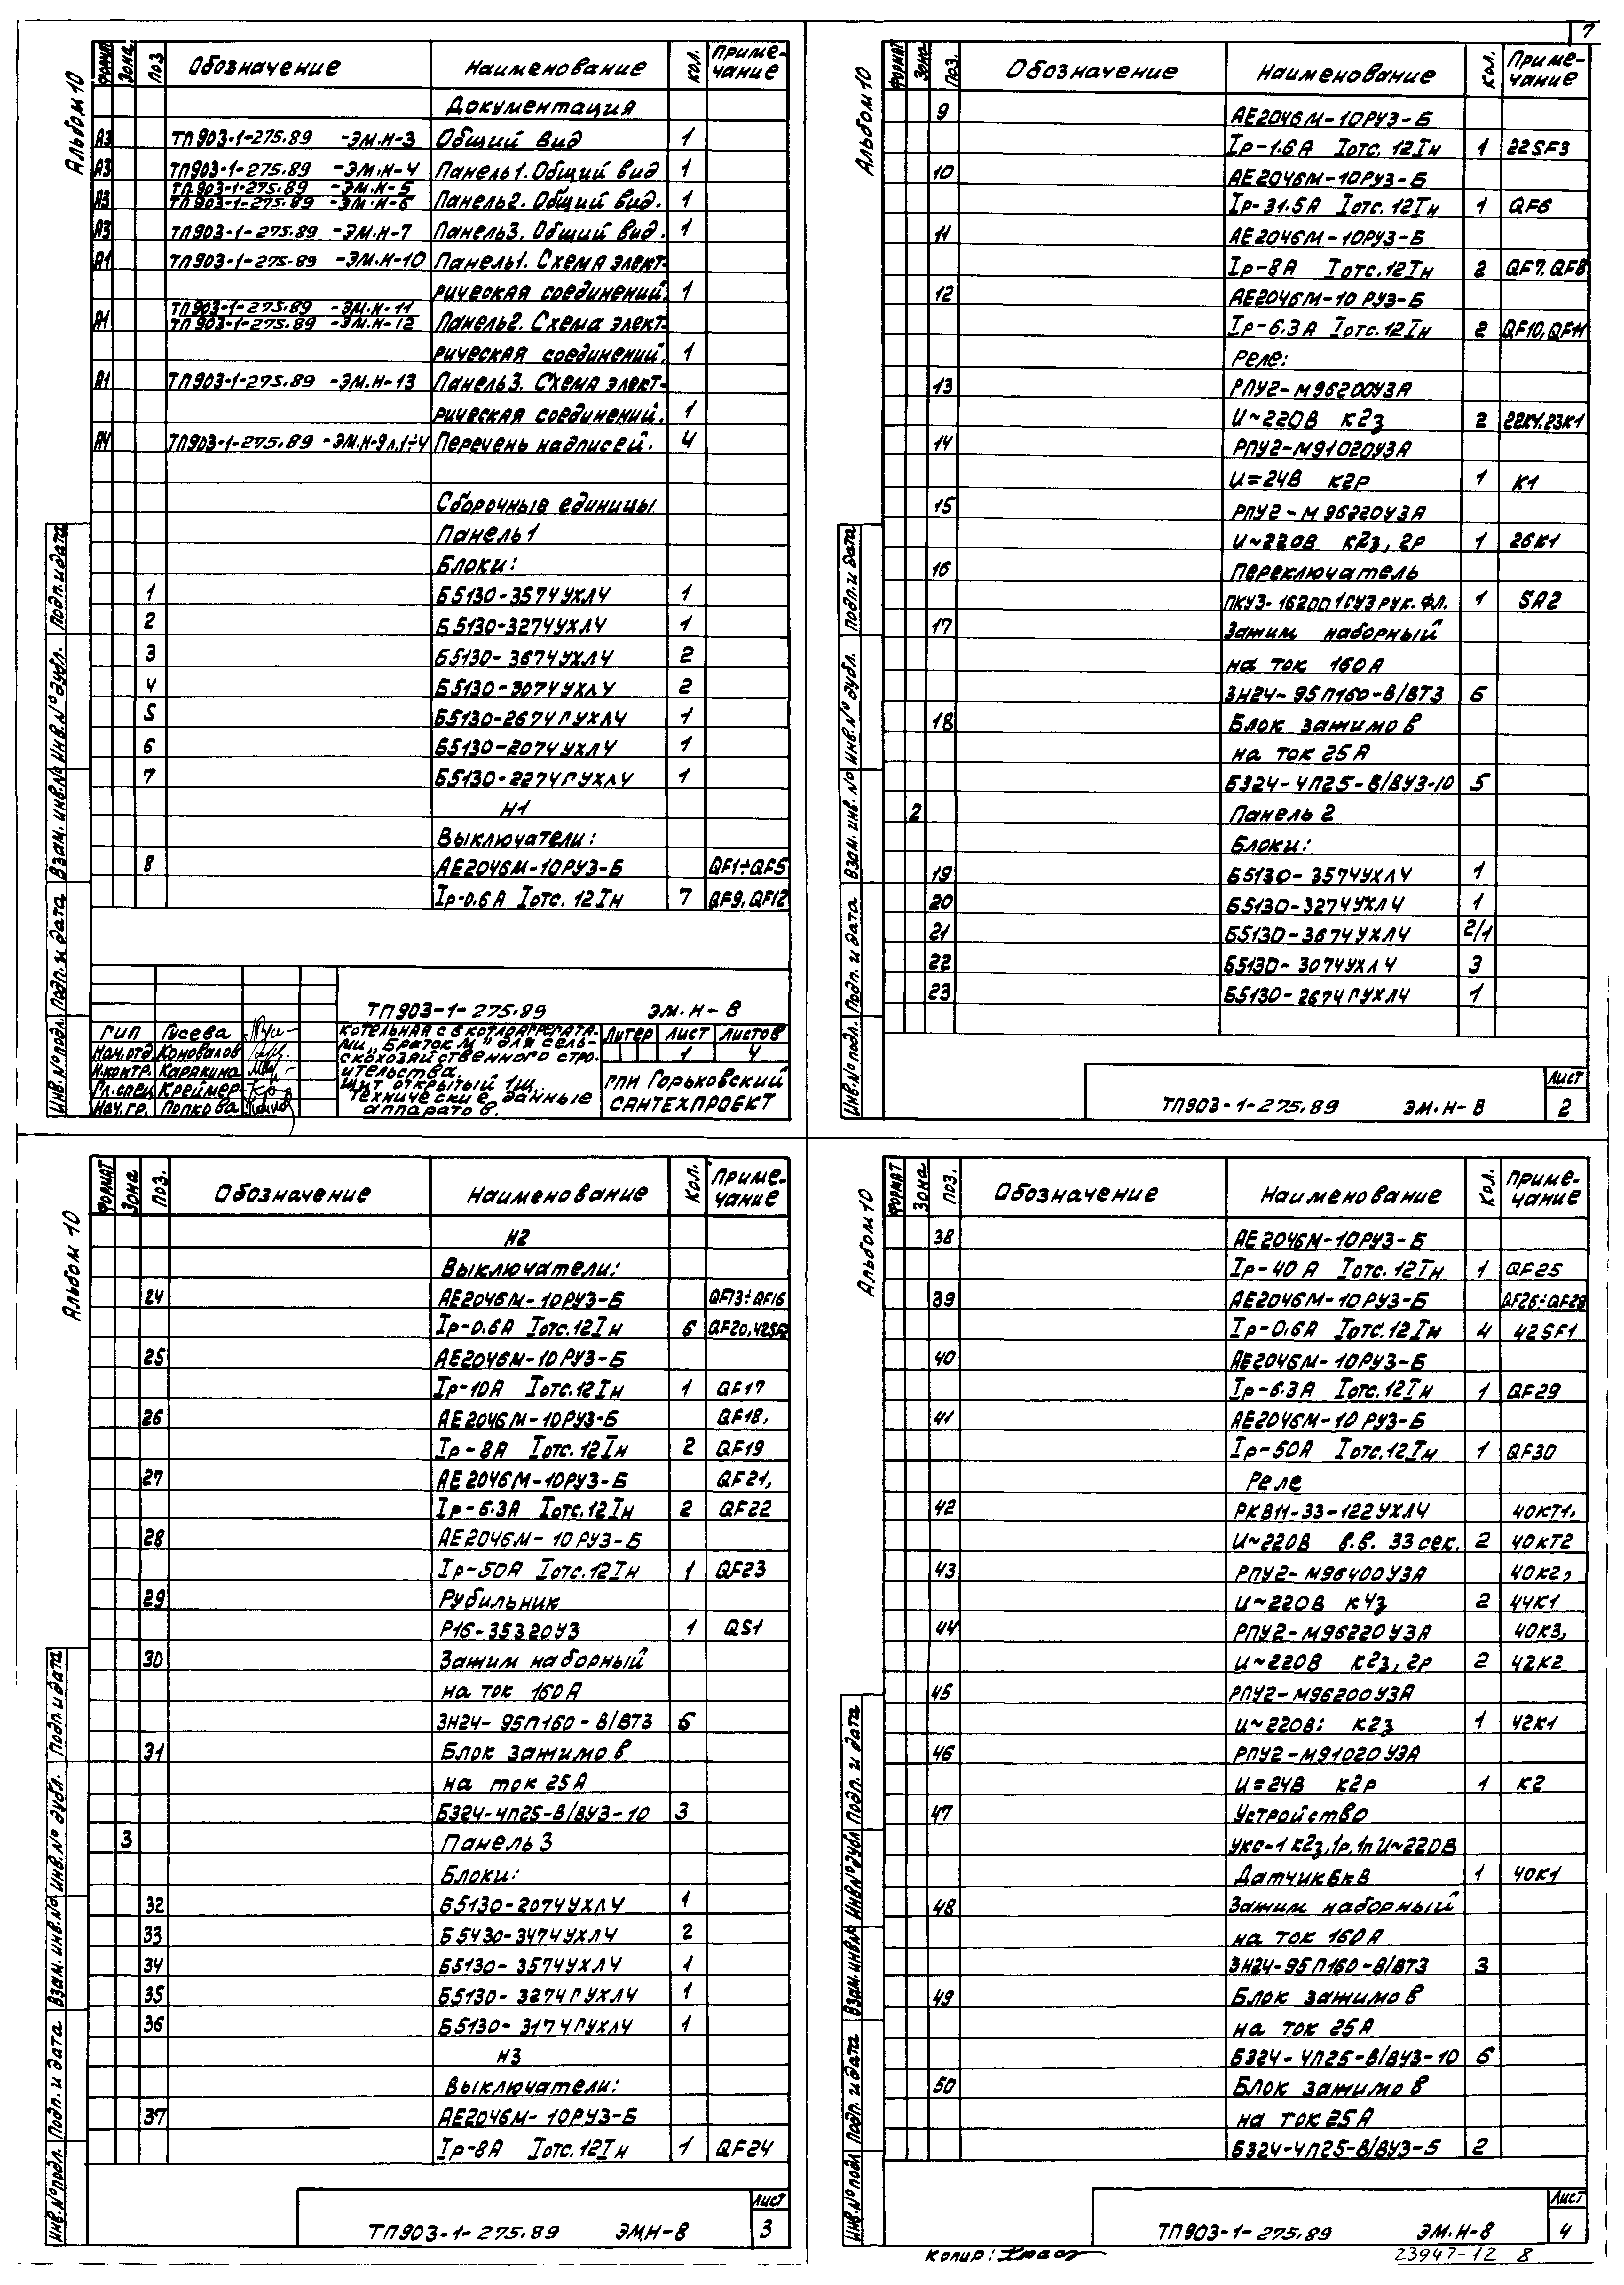 7
Альбом 10
Формат Зона Поз Обозначение Наименование Кол. Приме-
чание
Документация
А3 ТП903-1-275.89 -ЭМ.Н-3 Общий вид 1
А3 ТП903-1-275.89 -ЭМ.Н-4 Панель 1. Общий вид 1
ТП903-1-275.89 -ЭМ.Н-5
А3 ТП903-1-275.89 -ЭМ.Н-6 Панель 2. Общий вид. 1
А3 ТП903-1-275.89 -ЭМ.Н-7 Панель 3. Общий вид. 1
А1 ТП903-1-275.89 -ЭМ.Н-10 Панель 1. Схема элект-
рическая соединений. 1
ТП903-1-275.89 -ЭМ.Н-11
А1 ТП903-1-275.89 -ЭМ.Н-12 Панель 2. Схема элект-
рическая соединений. 1
А1 ТП903-1-275.89 -ЭМ.Н-13 Панель 3. Схема элект-
рическая соединений. 1
А4 ТП903-1-275.89 -ЭМ.Н-9л.1÷4 Перечень надписей. 4
Сборочные единицы
Панель 1
Блоки:
1 Б5130-3574УХЛ4 1
2 Б5130-3274УХЛ4 1
3 Б5130-3674УХЛ4 2
4 Б5130-3074УХЛ4 2
5 Б5130-2674ГУХЛ4 1
6 Б5130-2074УХЛ4 1
7 Б5130-2274ГУХЛ4 1
Н1
Выключатели:
8 АЕ2046М-10РУ3-Б QF1÷QF5
Iр-0.6А Iотс. 12Iн 7 QF9, QF12
Инв.№ подл. Подп. и дата Взам. инв.№ Инв.№ дубл. Подп. и дата
ТП903-1-275.89 ЭМ.Н-8
ГИП Гусева
Нач.отд Коновалов
Н.контр. Карякина
Гл.спец Креймер
Нач.гр. Попкова
Котельная с 8 котлоагрегата-
ми „Братск М" для сель-
скохозяйственного стро-
ительства.
Щит открытый 1щ.
Технические данные
аппаратов.
Литер Лист Листов
1 4
ГПИ Горьковский
Сантехпроект
Альбом 10
Формат Зона Поз. Обозначение Наименование Кол. Приме-
чание
9 АЕ2046М-10РУ3-Б
Iр-1.6А Iотс. 12Iн 1 22SF3
10 АЕ2046М-10РУ3-Б
Iр-31.5А Iотс. 12Iн 1 QF6
11 АЕ2046М-10РУ3-Б
Iр-8А Iотс. 12Iн 2 QF7, QF8
12 АЕ2046М-10РУ3-Б
Iр-6.3А Iотс. 12Iн 2 QF10, QF11
Реле:
13 РПУ2-М96200У3А
U~220В к2з 2 22К4, 23К1
14 РПУ2-М91020У3А
U=24В к2р 1 К1
15 РПУ2-М96220У3А
U~220В к2з, 2р 1 26К1
16 Переключатель
рук. фл. 1 SA2
17 Зажим наборный
на ток 160А
ЗН24-95П160-В/ВТ3 6
18 Блок зажимов
на ток 25А
Б324-4П25-В/ВУ3-10 5
2 Панель 2
Блоки:
19 Б5130-3574УХЛ4 1
20 Б5130-3274УХЛ4 1
21 Б5130-3674УХЛ4 2/1
22 Б5130-3074УХЛ4 3
23 Б5130-2674ГУХЛ4 1
Инв.№ подл. Подп. и дата Взам. инв.№ Инв.№ дубл. Подп. и дата
ТП903-1-275.89 ЭМ.Н-8 Лист
2
Альбом 10
Формат Зона Поз. Обозначение Наименование Кол. Приме-
чание
Н2
Выключатели:
24 АЕ2046М-10РУ3-Б QF13÷QF16
Iр-0.6А Iотс. 12Iн 6 QF20, 42SF2
25 АЕ2046М-10РУ3-Б
Iр-10А Iотс. 12Iн 1 QF17
26 АЕ2046М-10РУ3-Б QF18,
Iр-8А Iотс. 12Iн 2 QF19
27 АЕ2046М-10РУ3-Б QF21,
Iр-6.3А Iотс. 12Iн 2 QF22
28 АЕ2046М-10РУ3-Б
Iр-50А Iотс. 12Iн 1 QF23
29 Рубильник
Р16-35320У3 1 QS1
30 Зажим наборный
на ток 160А
ЗН24-95П160-В/ВТ3 6
31 Блок зажимов
на ток 25А
Б324-4П25-В/ВУ3-10 3
3 Панель 3
Блоки:
32 Б5130-2074УХЛ4 1
33 Б5430-3474УХЛ4 2
34 Б5130-3574УХЛ4 1
35 Б5130-3274ГУХЛ4 1
36 Б5130-3174ГУХЛ4 1
Н3
Выключатели:
37 АЕ2046М-10РУ3-Б
Iр-8А Iотс. 12Iн 1 QF24
Инв.№ подл. Подп. и дата Взам. инв.№ Инв.№ дубл. Подп. и дата
ТП903-1-275.89 ЭМ.Н-8 Лист
3
Альбом 10
Формат Зона Поз. Обозначение Наименование Кол. Приме-
чание
38 АЕ2046М-10РУ3-Б
Iр-40А Iотс. 12Iн 1 QF25
39 АЕ2046М-10РУ3-Б QF26÷QF28
Iр-0.6А Iотс. 12Iн 4 42SF1
40 АЕ2046М-10РУ3-Б
Iр-6.3А Iотс. 12Iн 1 QF29
41 АЕ2046М-10РУ3-Б
Iр-50А Iотс. 12Iн 1 QF30
Реле
42 РКВ11-33-122УХЛ4 40КТ1,
U~220В в.в. 33 сек. 2 40КТ2
43 РПУ2-М96400У3А 40К2,
U~220В к4з 2 44К1
44 РПУ2-М96220У3А 40К3,
U~220В к2з, 2р 2 42К2
45 РПУ2-М96200У3А
U~220В: к2з 1 42К1
46 РПУ2-М91020У3А
U=24В к2р 1 К2
47 Устройство
УКС-1 к2з, 1р, 1п U~220В
Датчик 6кВ 1 40К1
48 Зажим наборный
на ток 160А
ЗН24-95П160-В/ВТ3 3
49 Блок зажимов
на ток 25А
Б324-4П25-В/ВУ3-10 6
50 Блок зажимов
на ток 25А
Б324-4П25-В/ВУ3-5 2
Инв.№ подл Подп. и дата Взам. инв.№ Инв.№ дубл Подп. и дата
ТП903-1-275.89 ЭМ.Н-8 Лист
4
Копир:
23947-12 8